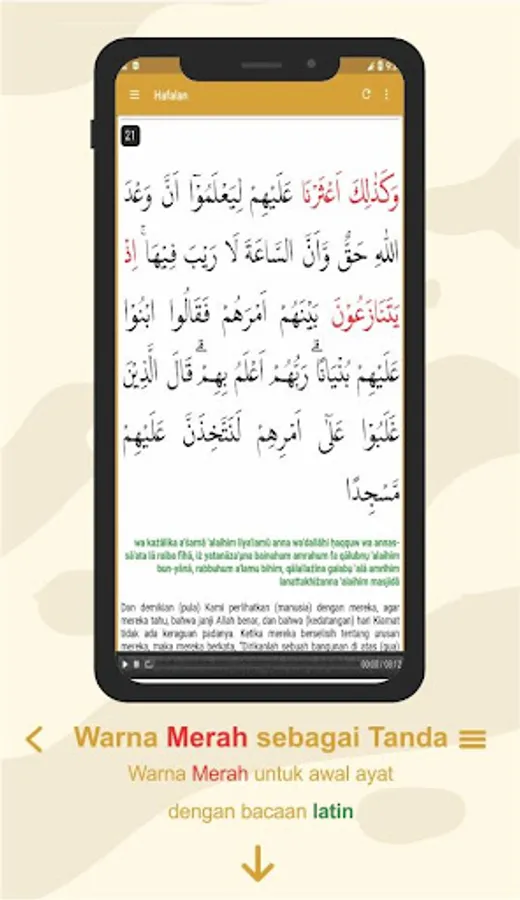 Hafalan
21
وَكَذٰلِكَ اَعْثَرْنَا عَلَيْهِمْ لِيَعْلَمُوْٓا اَنَّ وَعْدَ
اللّٰهِ حَقٌّ وَّاَنَّ السَّاعَةَ لَا رَيْبَ فِيْهَاۚ اِذْ
يَتَنَازَعُوْنَ بَيْنَهُمْ اَمْرَهُمْ فَقَالُوا ابْنُوْا
عَلَيْهِمْ بُنْيَانًاۗ رَبُّهُمْ اَعْلَمُ بِهِمْۗ قَالَ الَّذِيْنَ
غَلَبُوْا عَلٰٓى اَمْرِهِمْ لَنَتَّخِذَنَّ عَلَيْهِمْ
مَّسْجِدًا
wa każālika a'ṡarnā 'alaihim liya'lamū anna wa'dallāhi ḥaqquw wa annas-
sā'ata lā raiba fīhā, iż yatanāza'ụna bainahum amrahum fa qālubnụ 'alaihim
bun-yānā, rabbuhum a'lamu bihim, qālallażīna galabụ 'alā amrihim
lanattakhiżanna 'alaihim masjidā
Dan demikian (pula) Kami perlihatkan (manusia) dengan mereka, agar
mereka tahu, bahwa janji Allah benar, dan bahwa (kedatangan) hari Kiamat
tidak ada keraguan padanya. Ketika mereka berselisih tentang urusan
mereka, maka mereka berkata, "Dirikanlah sebuah bangunan di atas (gua)
00:00 / 00:12
Warna Merah sebagai Tanda
Warna Merah untuk awal ayat
dengan bacaan latin